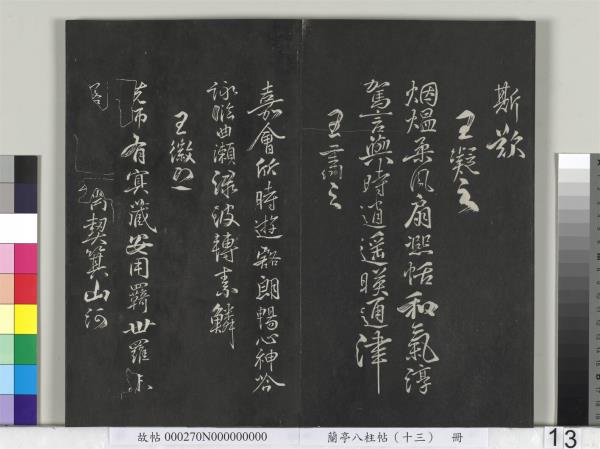 斯歡
王凝之
烟熅柔風扇熙怡和氣淳
駕言興時逍遥暎通津
王肅之
嘉會欣時遊豁朗暢心神吟
詠臨曲瀨渌波轉素鱗
王徽之
先師有冥藏安用羈世羅未
若 齊契箕山阿
故帖 000270N000000000
蘭亭八柱帖（十三） 冊
13